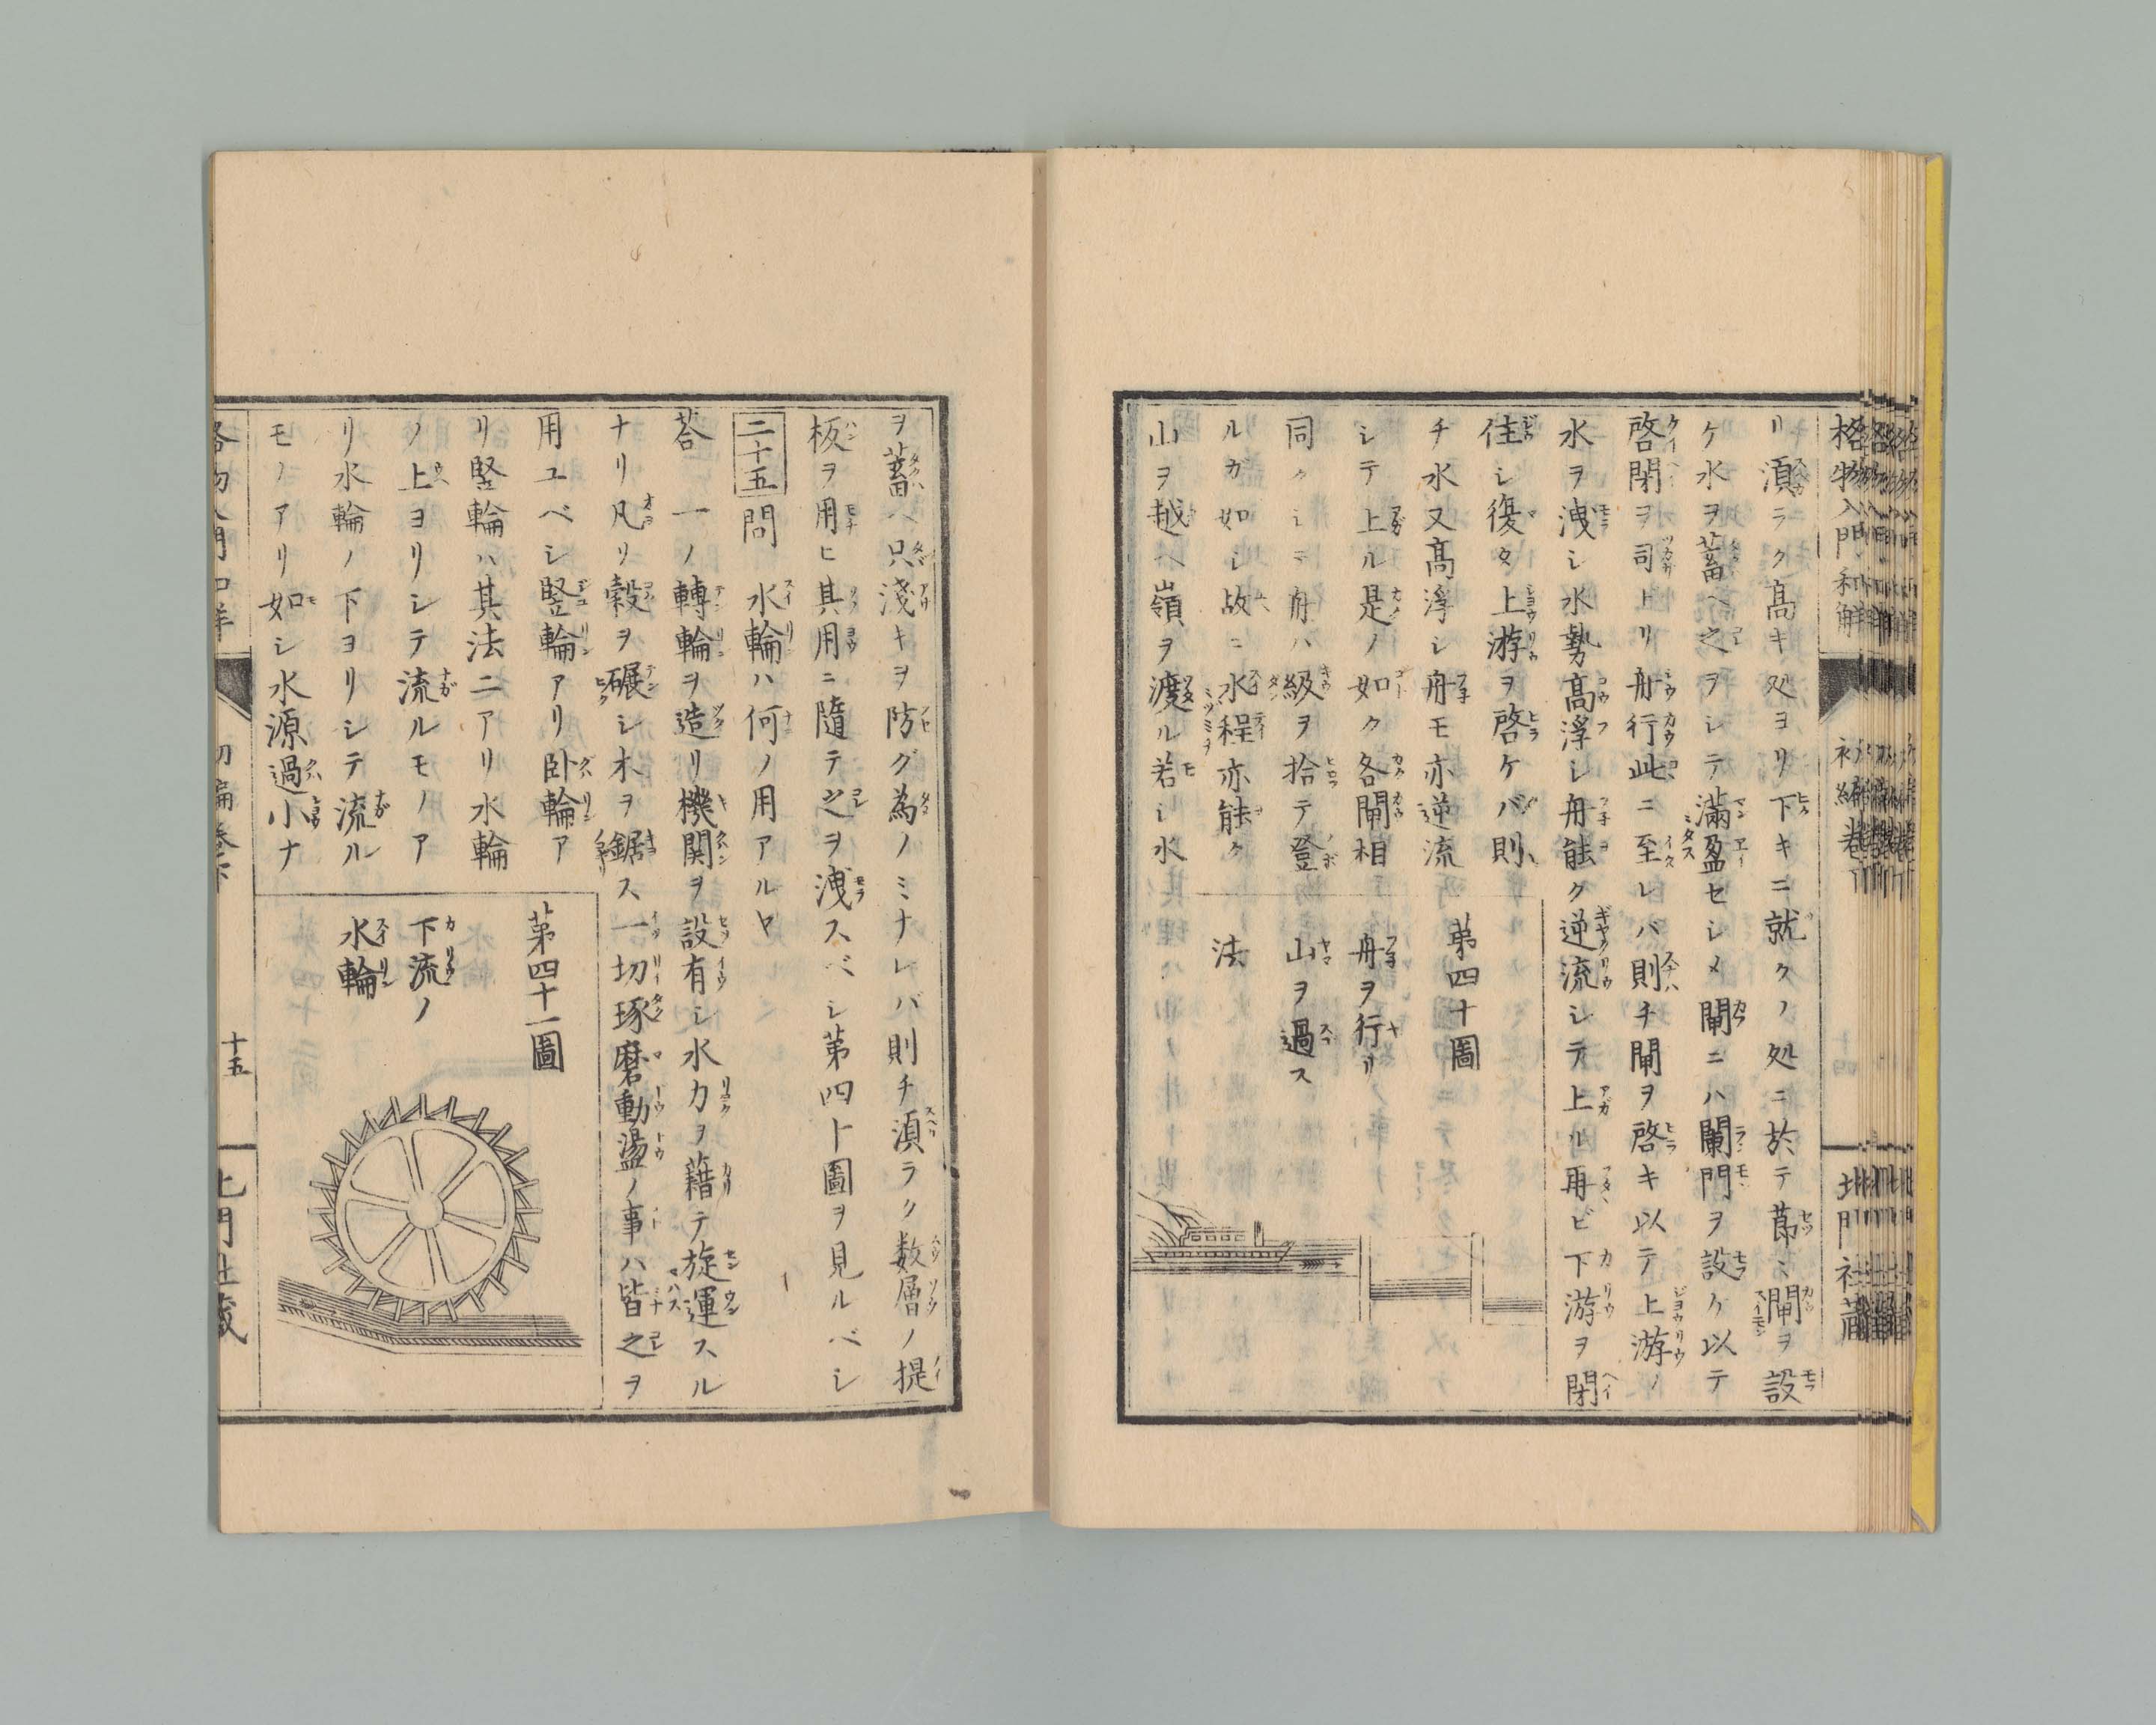 格物入門和解
初編巻
北門社蔵
リ湏ラク高キ処ヨリ下キニ就クノ処ニ於テ莭ニ閘ヲ設
ケ水ヲ蓄ヘ之ヲシテ滿盈セシメ閘ニハ闌門ヲ設ケ以テ
啓閉ヲ司トリ舟行此ニ至レバ則チ閘ヲ啓キ以テ上游ノ
水ヲ洩シ水勢髙浮シ舟能ク逆流シテ上ル再ビ下游ヲ閉
住シ復タ上游ヲ啓ケバ則
チ水又髙浮シ舟モ亦逆流
シテ上ル是ノ如ク各閘相
同クシテ舟ハ級ヲ拾テ登
ルガ如シ故ニ水程亦能ク
山ヲ越ヘ嶺ヲ渡ル若シ水
苐四十圖
舟ヲ行リ
山ヲ過ス
法
ヲ蓄ヘ只淺キヲ防グ為ノミナレバ則チ湏ラク数層ノ提
板ヲ用ヒ其用ニ隨テ之ヲ洩スベシ苐四十圖ヲ見ルベシ
二十五 問 水輪ハ何ノ用アルヤ
荅 一ノ轉輪ヲ造リ機関ヲ設有シ水力ヲ藉テ旋運スル
ナリ凡リ穀ヲ碾シ木ヲ鋸ス一切琢磨動盪ノ事ハ皆之ヲ
用ユベシ竪輪アリ卧輪ア
リ竪輪ハ其法二アリ水輪
ノ上ヨリシテ流ルモノア
リ水輪ノ下ヨリシテ流ル
モノアリ如シ水源過小ナ
苐四十一圖
下流ノ
水輪
十五